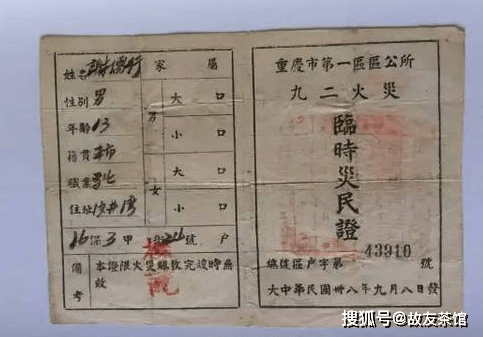 重慶市第一區區公所
九二火災
臨時災民證
43910
編號區戶字第 號
大中華民國卅八年九月八日發
姓名 謝
家屬
性別 男
年齡 13
籍貫 本市
職業
住址
男 大 口
小 口
女 大 口
小 口
16保3甲 號 戶
備考 本證限火災賑救完竣時無效
搜狐号@故友茶馆